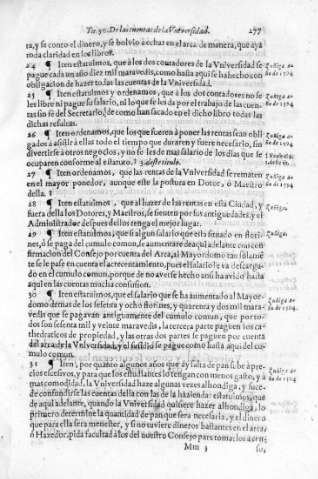 Tit. 30. De las cuentas de la Vniversidad. 277
ra, y se conto el dinero, y se bolvio a echar en el arca de manera, que aya
toda claridad en los libros.
24 ¶ Iten estatuimos, que a los dos contadores de la Vniversidad se
pague cada un año diez mil maravedis, como hasta aqui se ha hecho con
obligacion de hazer todas las cuentas de la Vniversidad.
25 ¶ Iten estatuimos y ordenamos, que a los dos contadores no se
les libre ni pague su salario, ni lo que se les da por el trabajo de las cuen-
tas sin fè del Secretario, de como han sacado en el dicho libro todas las
dichas resultas.
26 ¶ Iten ordenamos, que los que fueren à poner las rentas sean obli-
gados à assistir à ella todo el tiempo que duraren, y fuere necessario, sin
divertirse à otros negocios, y no se les de mas salario de los dias que se
ocuparen conforme al estatuto.
27 ¶ Iten ordenamos, que las rentas de la Vniversidad se rematen
en el mayor ponedor, aunque este la postura en Dotor, ò Maestro
della.
28 ¶ Iten estatuimos, que al hazer de las rentas en esta Ciudad, y
fuera della los Dotores, y Maestros, se sienten por sus antiguedades, y el
Administrador despues dellos tenga el mejor lugar.
29 ¶ Iten estatuimos, que si algun salario que esta situado en flori-
nes, ò se paga del cumulo comun, se aumentare de aqui adelante con con-
firmacion del Consejo por cuenta del Arca, al Mayordomo tan solamẽ
te se le pase en cuenta el acrecentamiento, pues el salario le va descarga-
do en el cumulo comun, porque de no averse hecho ansi ha avido hasta
aqui en las cuentas mucha confusion.
30 ¶ Iten estatuimos, que el salario que se ha aumentado al Mayor-
domo demas de los sesenta y ocho florines, y quarenta y dos mil mara-
vedis que se pagavan antiguamente del cumulo comun, que por to-
dos son sesenta mil y veinte maravedis, la tercera parte paguen los ca-
thedraticos de propiedad, y las otras dos partes se paguen por cuenta
del arca de la Vniversidad, y el subsidio se pague como hasta aqui del cu-
mulo comun.
31 ¶ Iten, por quanto algunos años ay falta de pan, sube à pre-
cios excesivos, y para que los estudiantes lo tengan con menos gasto, y à
mas comodidad, la Vniversidad haze algunas vezes alhondiga, y suce-
de confundirse las cuentas della con las de la hazienda: estatuimos, que
de aqui adelante, quando la Vniversidad quisiere hazer alhondiga, lo
primero determine la quantidad de pan que sera necessaria, y el dinero
que para ella sera menester, y si no uviere dineros bastantes en el arca
ò Hazedor, pida facultad à los del nuestro Consejo para tomarlos à censo
Mm 3